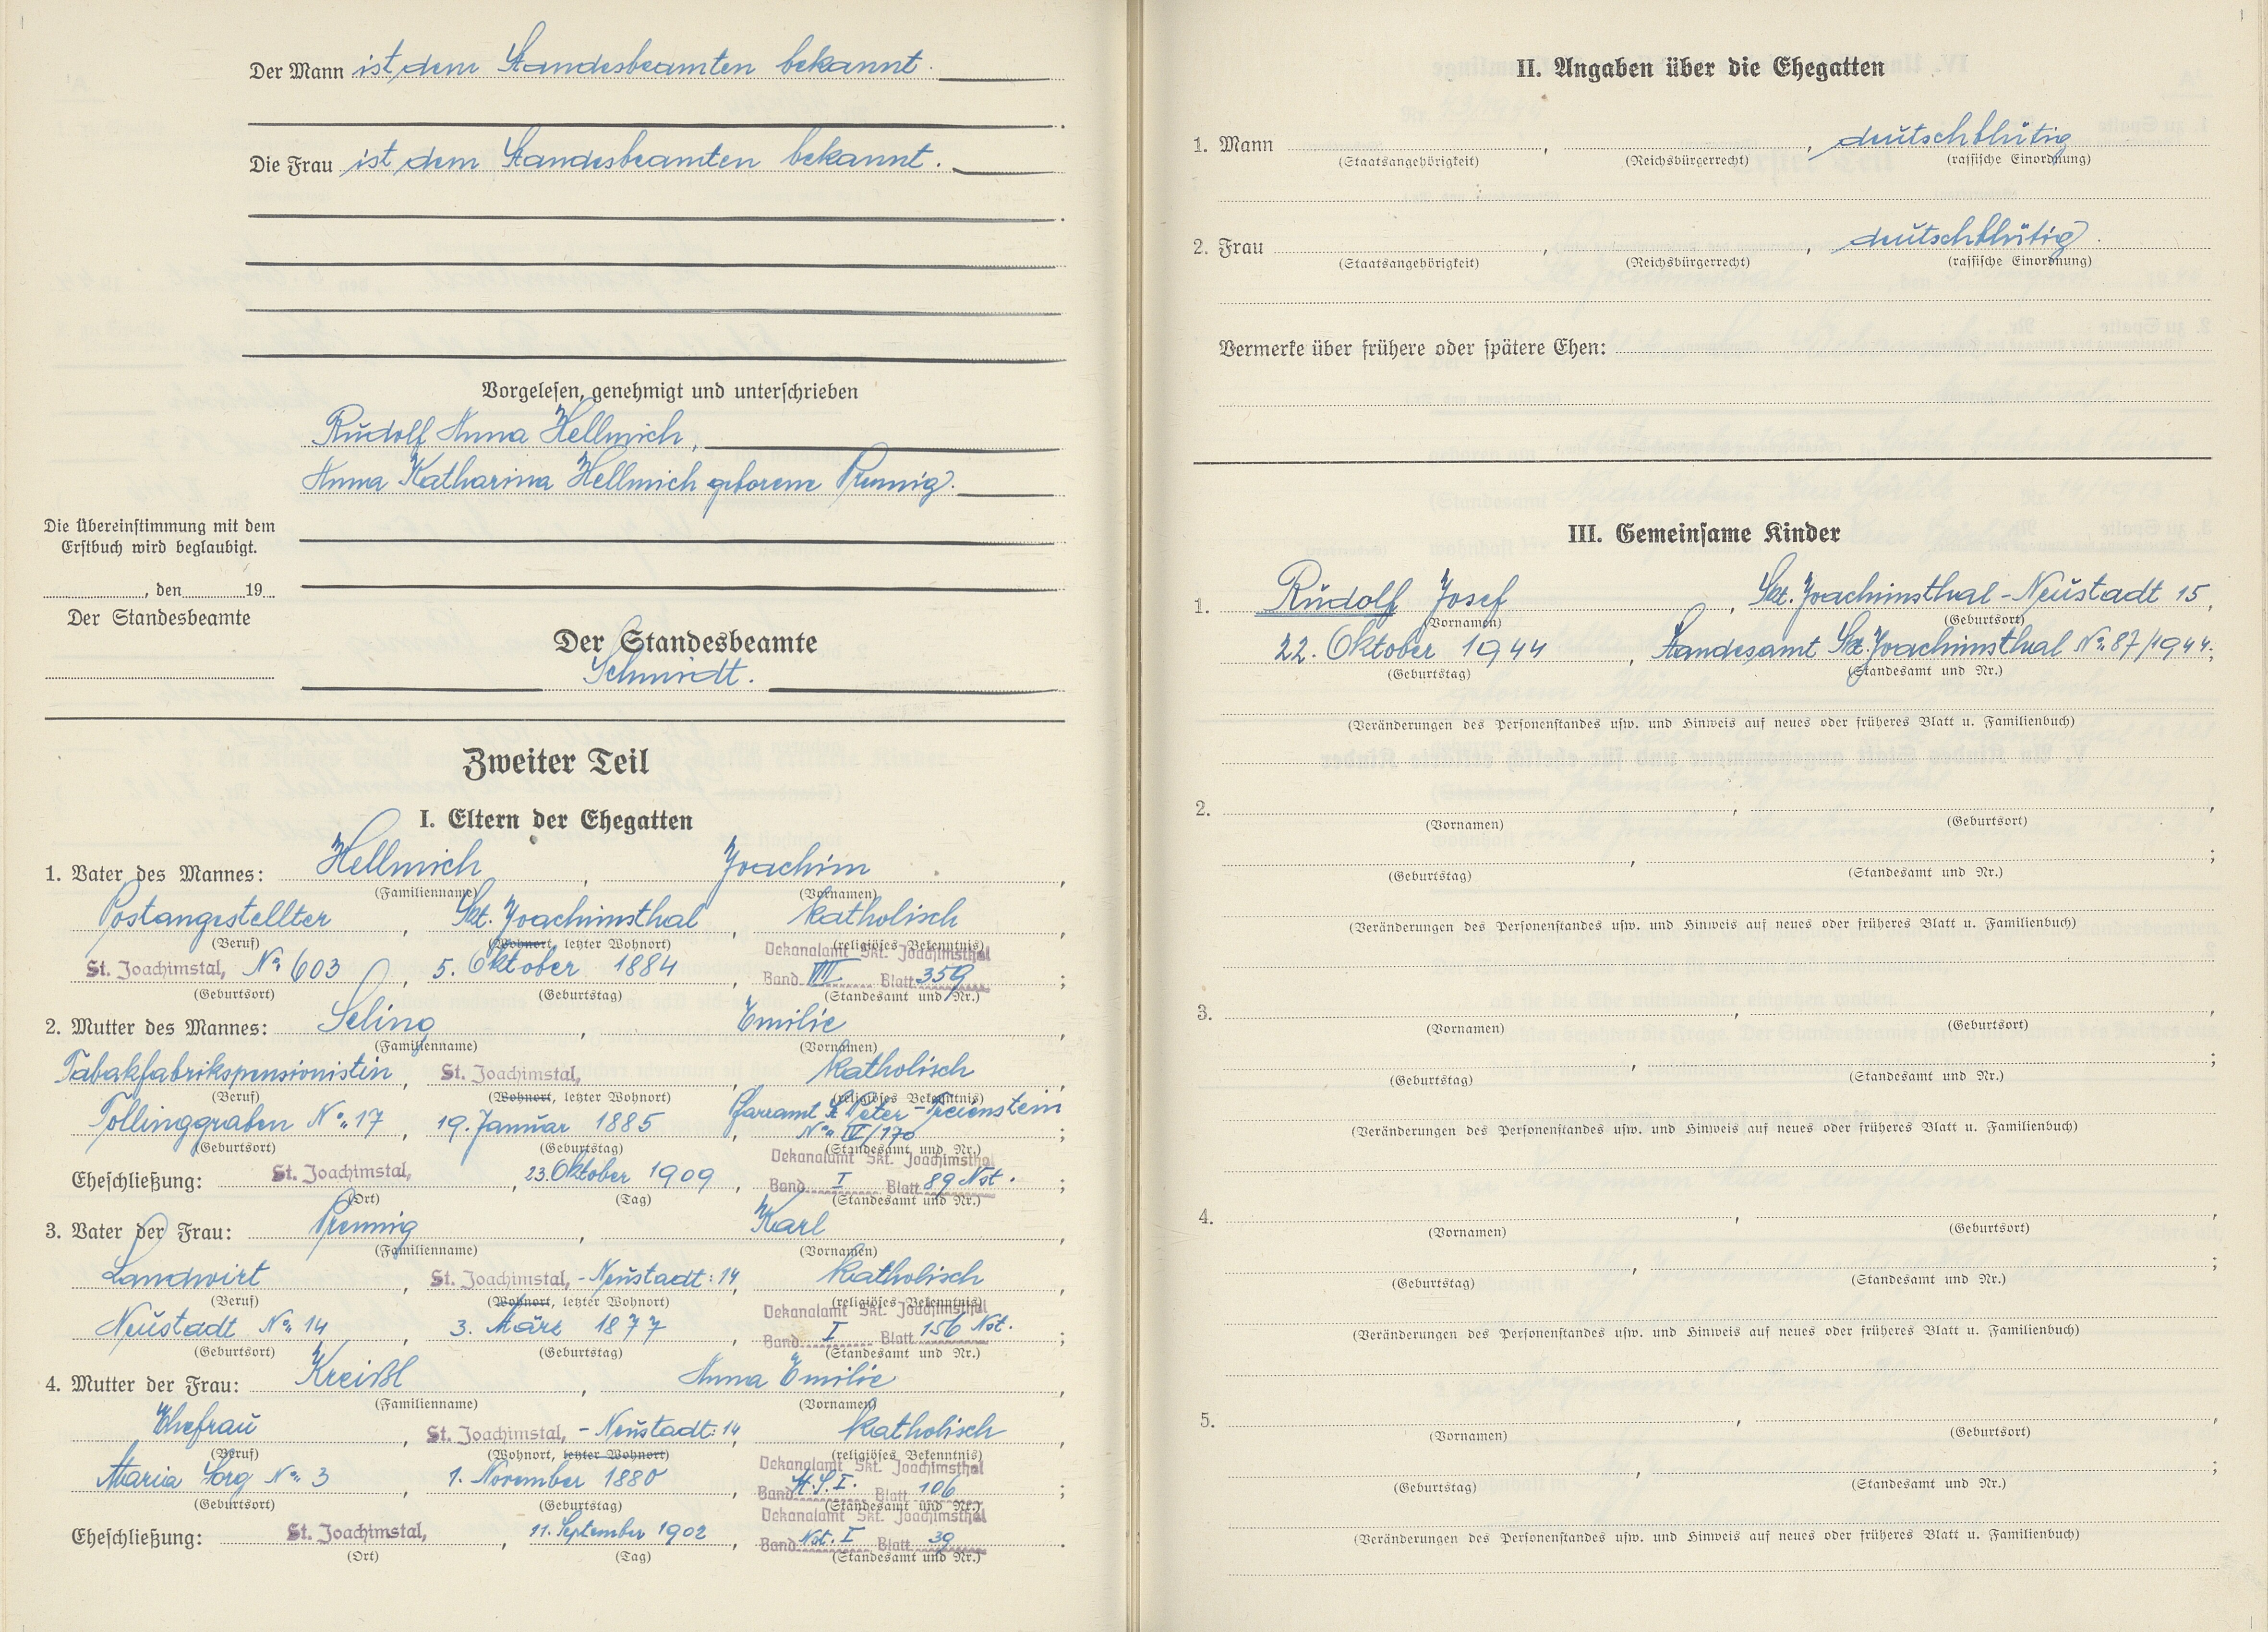 Der Mann ist dem Standesbeamten bekannt.
Die Frau ist dem Standesbeamten bekannt.
Vorgelesen, genehmigt und unterschrieben
Rudolf Anna Hellmich,
Anna Katharina Hellmich geborene Prennig.
Die Übereinstimmung mit dem
Erstbuch wird beglaubigt.
, den 19
Der Standesbeamte
Der Standesbeamte
Schmidt.
Zweiter Teil
I. Eltern der Ehegatten
1. Vater des Mannes: Hellmich, Joachim,
(Familienname) (Vornamen)
Postangestellter, Skt. Joachimsthal, katholisch,
(Beruf) (Wohnort, letzter Wohnort) (religiöses Bekenntnis)
Dekanalamt Skt. Joachimsthal
St. Joachimstal, No. 603, 5. Oktober 1884, Band VIII Blatt 359;
(Geburtsort) (Geburtstag) (Standesamt und Nr.)
2. Mutter des Mannes: Seling, Emilie,
(Familienname) (Vornamen)
Tabakfabrikspensionistin, St. Joachimstal, katholisch,
(Beruf) (Wohnort, letzter Wohnort) (religiöses Bekenntnis)
Pfarramt St. Peter-Freienstein
Tollinggraben No. 17, 19. Januar 1885, No. IV/170;
(Geburtsort) (Geburtstag) (Standesamt und Nr.)
Dekanalamt Skt. Joachimsthal
Eheschließung: St. Joachimstal, 23. Oktober 1909, Band I Blatt 89 Nst.;
(Ort) (Tag) (Standesamt und Nr.)
3. Vater der Frau: Prennig, Karl,
(Familienname) (Vornamen)
Landwirt, St. Joachimstal, - Neustadt: 14, katholisch,
(Beruf) (Wohnort, letzter Wohnort) (religiöses Bekenntnis)
Dekanalamt Skt. Joachimsthal
Neustadt No. 14, 3. März 1877, Band I Blatt 156 Nst.;
(Geburtsort) (Geburtstag) (Standesamt und Nr.)
4. Mutter der Frau: Kreißl, Anna Emilie,
(Familienname) (Vornamen)
Ehefrau, St. Joachimstal, - Neustadt: 14, katholisch,
(Beruf) (Wohnort, letzter Wohnort) (religiöses Bekenntnis)
Dekanalamt Skt. Joachimsthal
Maria Sorg No. 3, 1. November 1880, Band M.S.I. Blatt 106;
(Geburtsort) (Geburtstag) (Standesamt und Nr.)
Dekanalamt Skt. Joachimsthal
Eheschließung: St. Joachimstal, 11. September 1902, Band Nst. I Blatt 39.
(Ort) (Tag) (Standesamt und Nr.)
II. Angaben über die Ehegatten
1. Mann , , deutschblütig
(Staatsangehörigkeit) (Reichsbürgerrecht) (rassische Einordnung)
2. Frau , , deutschblütig.
(Staatsangehörigkeit) (Reichsbürgerrecht) (rassische Einordnung)
Vermerke über frühere oder spätere Ehen:
III. Gemeinsame Kinder
1. Rudolf Josef, Skt. Joachimsthal - Neustadt 15,
(Vornamen) (Geburtsort)
22. Oktober 1944, Standesamt Skt. Joachimsthal No. 87/1944;
(Geburtstag) (Standesamt und Nr.)
(Veränderungen des Personenstandes usw. und Hinweis auf neues oder früheres Blatt u. Familienbuch)
2. , ,
(Vornamen) (Geburtsort)
, ;
(Geburtstag) (Standesamt und Nr.)
(Veränderungen des Personenstandes usw. und Hinweis auf neues oder früheres Blatt u. Familienbuch)
3. , ,
(Vornamen) (Geburtsort)
, ;
(Geburtstag) (Standesamt und Nr.)
(Veränderungen des Personenstandes usw. und Hinweis auf neues oder früheres Blatt u. Familienbuch)
4. , ,
(Vornamen) (Geburtsort)
, ;
(Geburtstag) (Standesamt und Nr.)
(Veränderungen des Personenstandes usw. und Hinweis auf neues oder früheres Blatt u. Familienbuch)
5. , ,
(Vornamen) (Geburtsort)
, ;
(Geburtstag) (Standesamt und Nr.)
(Veränderungen des Personenstandes usw. und Hinweis auf neues oder früheres Blatt u. Familienbuch)